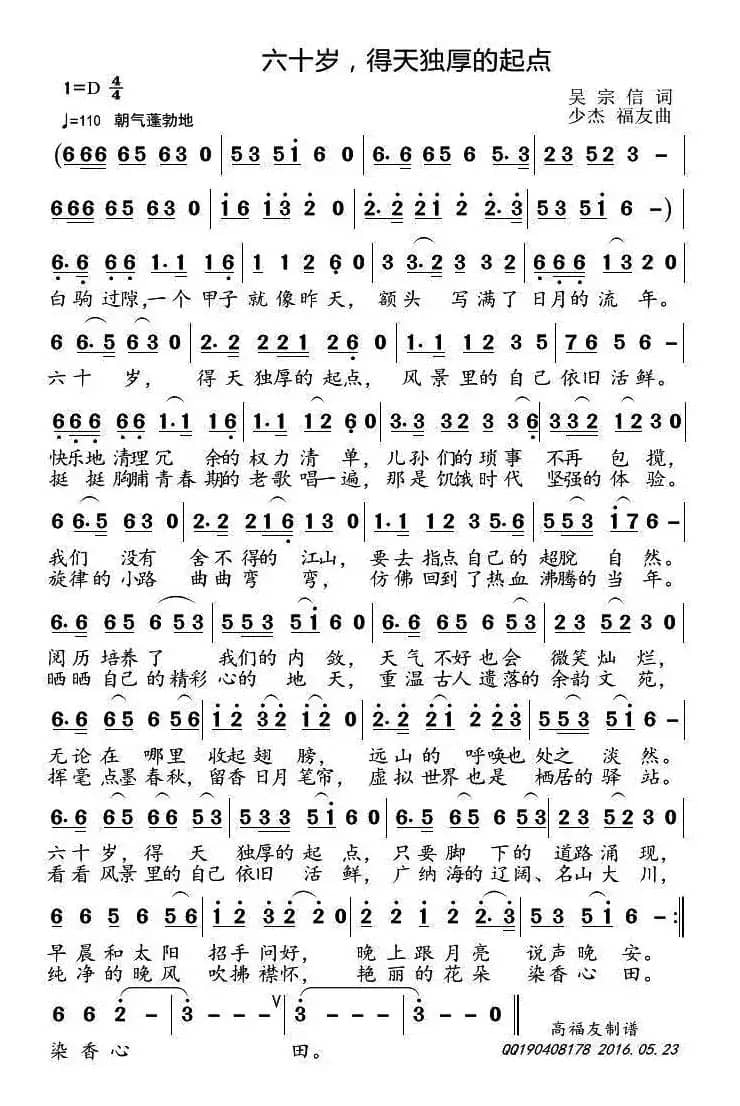 六十岁，得天独厚的起点
1=D 4/4
吴宗信词
♩=110 朝气蓬勃地
少杰 福友曲
(6666 65 630 | 53 5i 60 | 6. 6 65 65. 3 | 23 52 3 - |
666 65 630 | i6 i3 20 | 2. 2 2i 22. 3 | 53 5i 6 - )
6. 6 66 1. 1 16 | 1 12 60 | 3 3. 2 33. 2 | 666 13 20 |
白驹过隙,一个甲子就像昨天，额头 写满了日月的流 年。
6 6. 5 630 | 2. 2 221 26 0 | 1. 1 12 35 | 76 56 - |
六十 岁， 得天独厚的起点，风景里的自己依旧活鲜。
666 66 1. 1 16 | 1. 1 12 60 | 3. 3 32 33 36 | 332 12 30 |
快乐地清理冗 余的权力清 单，儿孙们的琐事 不再 包 揽，
挺 挺胸脯青春期的老歌唱一遍，那是饥饿时代 坚强的体 验。
6 6. 5 630 | 2. 2 216 13 0 | 1. 1 12 35. 6 | 553 i7 6 - |
我们 没有 舍不得的 江山，要去指点自己的超脱 自 然。
旋律的小路 曲曲弯 弯， 仿佛回到了热血沸腾的当 年。
6. 6 65 65 653 | 553 5i 60 | 6. 6 65 63 56 | 553 52 30 |
阅历培养了 我们的内 敛，天气不好也会 微笑灿 烂，
晒晒自己的精彩心的 地 天，重温古人遗落的余韵文 苑，
6. 6 65 6 56 | i2 32 i20 | 2. 2 2i 2 23 | 553 5i 6 - |
无论在 哪里 收起翅 膀， 远山的 呼唤也处之 淡 然。
挥毫点墨春秋，留香日月笔帘，虚拟世界也是 栖居的驿 站。
6. 6 65 66 53 | 533 5i 60 | 6. 5 65 6 53 | 23 52 30 |
六十岁，得 天 独厚的起 点，只要脚 下的道路涌 现，
看看风景里的自己依旧 活 鲜，广纳海的辽阔、名山大 川，
6 65 6 56 | i2 32 2 0 | 2 2i 2 2. 3 | 553 i6 6 - :‖
早晨和太阳 招手问好， 晚上跟月亮 说声晚 安。
纯净的晚风 吹拂襟怀， 艳丽的花朵 染香心 田。
6 6 2 - | 3 - - - V | 3 - - - | 3 - - 0 ‖
染 香 心 田。
高福友制谱
QQ190408178 2016.05.23